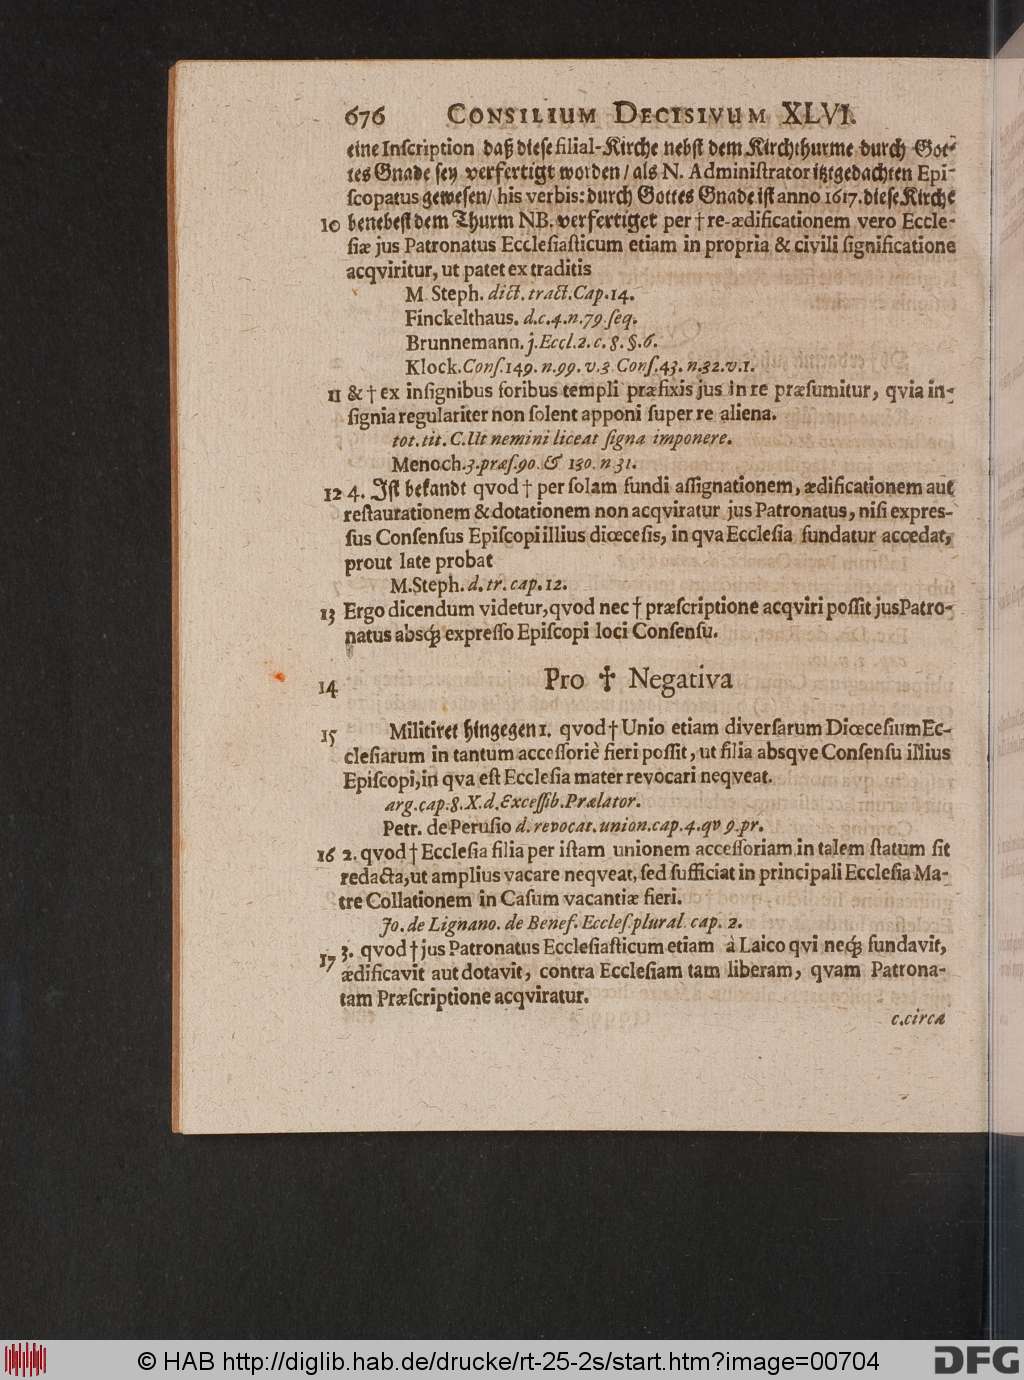 676 CONSILIUM DECISIVUM XLVI.
eine Inſcription daß dieſe filial-Kirche nebſt dem Kirchthurme durch Got-
tes Gnade ſey verfertigt worden / als N. Adminiſtrator itztgedachten Epi-
ſcopatus geweſen / his verbis: durch Gottes Gnade iſt anno 1617. dieſe Kirche
10 benebeſt dem Thurm NB. verfertiget per † re-ædificationem vero Eccle-
ſiæ jus Patronatus Eccleſiaſticum etiam in propria & civili ſignificatione
acqviritur, ut patet ex traditis
M. Steph. dict. tract. Cap. 14.
Finckelthaus. d. c. 4. n. 79. ſeq.
Brunnemann. j. Eccl. 2. c. 8. §. 6.
Klock. Conſ. 149. n. 99. v. 3. Conſ. 43. n. 32. v. 1.
11 & † ex inſignibus foribus templi præfixis jus in re præſumitur, qvia in-
ſignia regulariter non ſolent apponi ſuper re aliena.
tot. tit. C. Ut nemini liceat ſigna imponere.
Menoch. 3. præſ. 90. & 130. n 31.
12 4. Iſt bekandt qvod † per ſolam fundi aſſignationem, ædificationem aut
reſtaurationem & dotationem non acqviratur jus Patronatus, niſi expreſ-
ſus Conſenſus Epiſcopi illius diœceſis, in qva Eccleſia fundatur accedat,
prout late probat
M. Steph. d. tr. cap. 12.
13 Ergo dicendum videtur, qvod nec † præſcriptione acqviri poſſit jus Patro-
natus absq; expreſſo Epiſcopi loci Conſenſu.
14 Pro † Negativa
15 Militiret hingegen 1. qvod † Unio etiam diverſarum Diœceſium Ec-
cleſiarum in tantum acceſſoriè fieri poſſit, ut filia absqve Conſenſu illius
Epiſcopi, in qva eſt Eccleſia mater revocari neqveat.
arg. cap. 8. X. d. Exceſſib. Prælator.
Petr. de Peruſio d. revocat. union. cap. 4. qv 9. pr.
16 2. qvod † Eccleſia filia per iſtam unionem acceſſoriam in talem ſtatum ſit
redacta, ut amplius vacare neqveat, ſed ſufficiat in principali Eccleſia Ma-
tre Collationem in Caſum vacantiæ fieri.
Jo. de Lignano. de Benef. Eccleſ. plural. cap. 2.
17 3. qvod † jus Patronatus Eccleſiaſticum etiam à Laico qvi neq; fundavit,
ædificavit aut dotavit, contra Eccleſiam tam liberam, qvam Patrona-
tam Præſcriptione acqviratur.
c. circa
© HAB http://diglib.hab.de/drucke/rt-25-2s/start.htm?image=00704
DFG